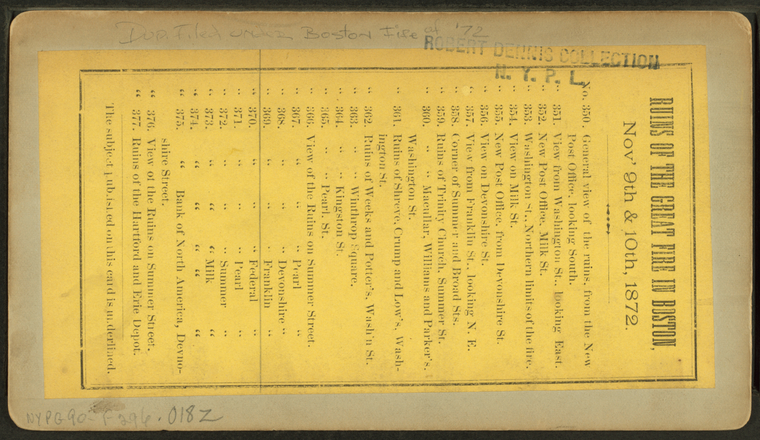 Dup. Filed under Boston Fire of '72
ROBERT DENNIS COLLECTION
N. Y. P. L.
RUINS OF THE GREAT FIRE IN BOSTON,
Nov' 9th & 10th, 1872.
No. 350. General view of the ruins, from the New
Post Office, looking South.
351. View from Washington St., looking East.
352. New Post Office, Milk St.
353. Washington St., Northern limits of the fire.
354. View on Milk St.
355. New Post Office, from Devonshire St.
356. View on Devonshire St.
357. View from Franklin St., looking N. E.
358. Corner of Summer and Broad Sts.
359. Ruins of Trinity Church, Summer St.
360. " " Macullar, Williams and Parker's,
Washington St.
361. Ruins of Shreve, Crump and Low's, Wash-
ington St.
362. Ruins of Weeks and Potter's, Wash'n St.
363. " " Winthrop Square.
364. " " Kingston St.
365. " " Pearl St.
366. View of the Ruins on Summer Street.
367. " " Pearl "
368. " " Devonshire "
369. " " Franklin "
370. " " Federal "
371. " " Pearl "
372. " " Summer "
373. " " Milk "
374. " " " "
375. " " Bank of North America, Devon-
shire Street.
376. View of the Ruins on Summer Street.
377. Ruins of the Hartford and Erie Depot.
The subject published on this card is underlined.
NYPG90-F296.018Z